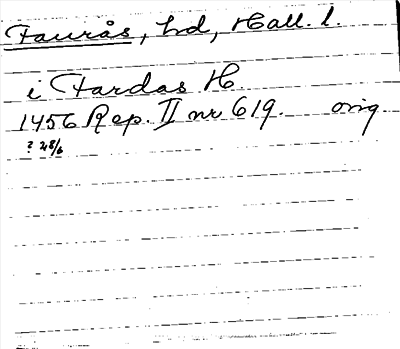 Faurås, hd, Hall. l.
i Fardas H
1456 Rep. II nr 619. orig
? 28/6